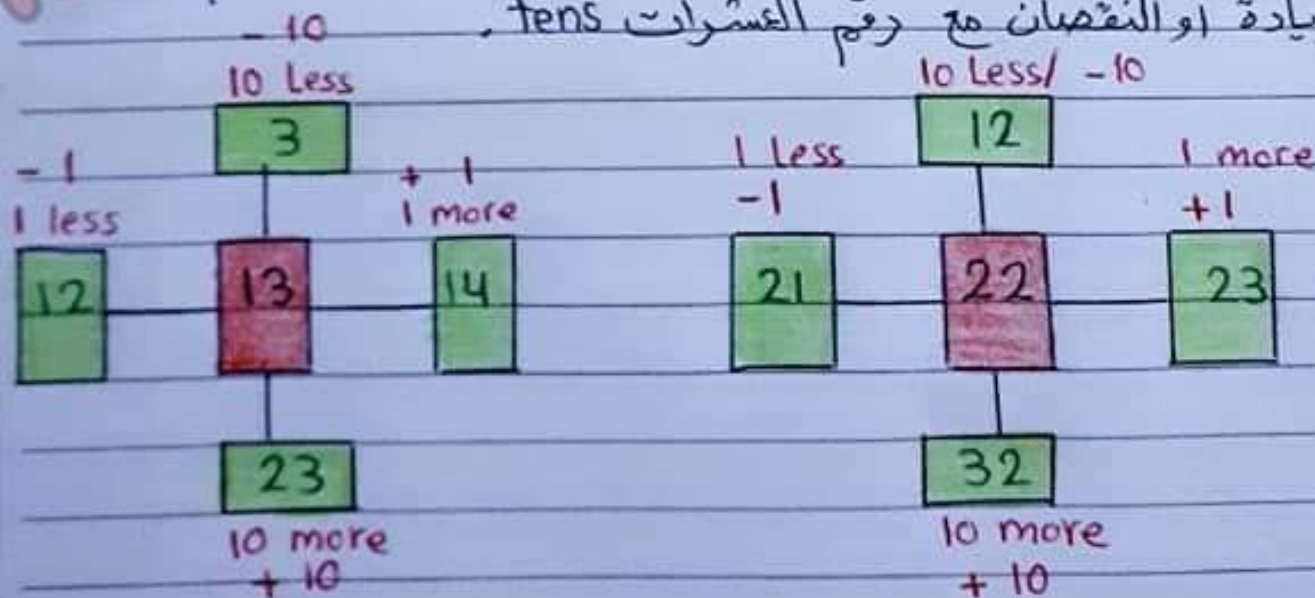 يادة او النقصان مع رقم العشرات tens .
- 10
10 Less
3
- 1
1 less
+ 1
1 more
12 13 14
23
10 more
+ 10
10 Less/ -10
12
1 less
-1
1 more
+1
21 22 23
32
10 more
+ 10